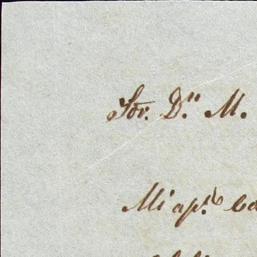 Sor. Dn. M.
Mi apo.